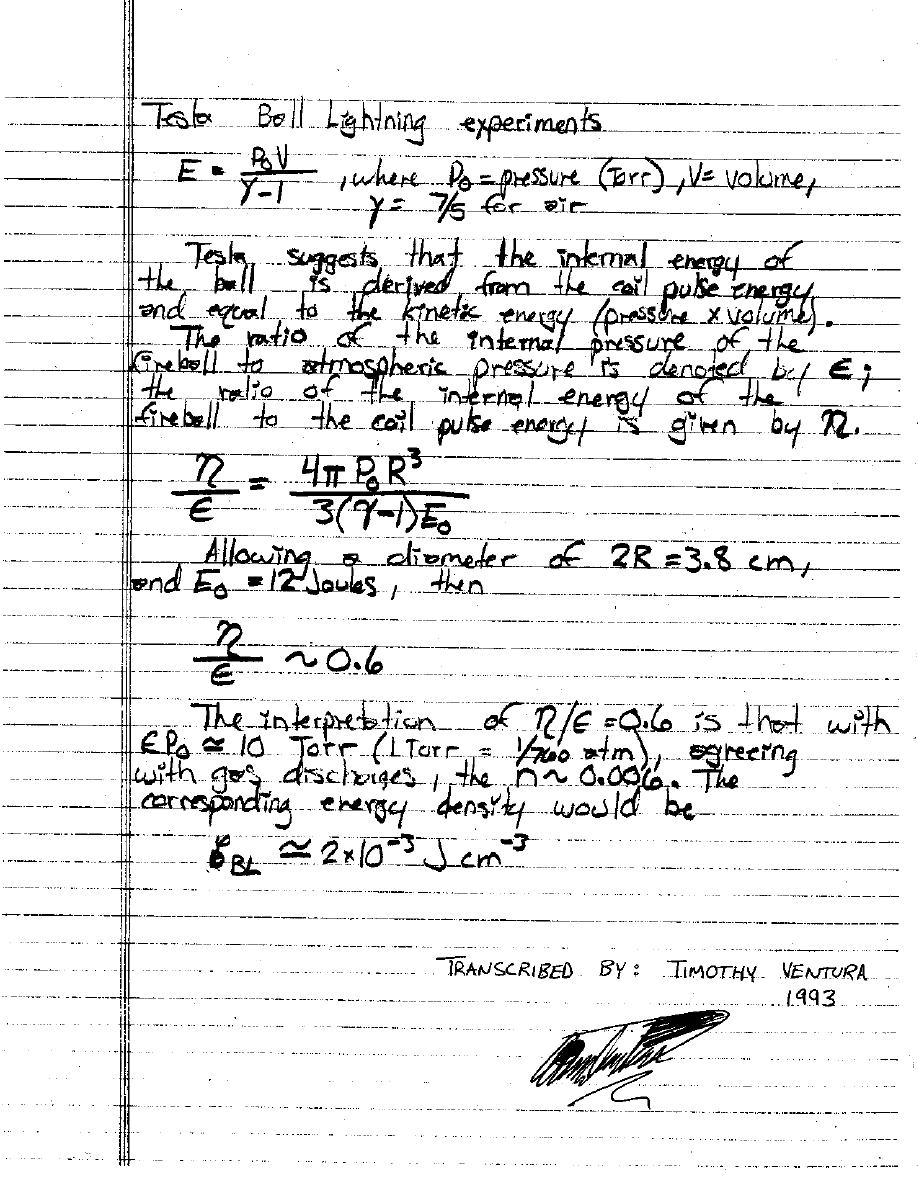 Tesla Ball Lightning experiments
E = P₀V / γ-1 , where P₀ = pressure (Torr), V = volume,
γ = 7/5 for air
Tesla suggests that the internal energy of
the ball is derived from the coil pulse energy
and equal to the kinetic energy (pressure x volume).
The ratio of the internal pressure of the
fireball to atmospheric pressure is denoted by ϵ;
the ratio of the internal energy of the
fireball to the coil pulse energy is given by η.
η/ϵ = 4π P₀ R³ / 3(γ-1)E₀
Allowing a diameter of 2R = 3.8 cm,
and E₀ = 12 Joules, then
η/ϵ ~ 0.6
The interpretation of η/ϵ = 0.6 is that with
ϵP₀ ≃ 10 Torr (1 Torr = 1/760 atm), agreeing
with gas discharges, the n ~ 0.006. The
corresponding energy density would be
BL ≃ 2×10⁻³ J cm⁻³
TRANSCRIBED BY: TIMOTHY VENTURA
1993